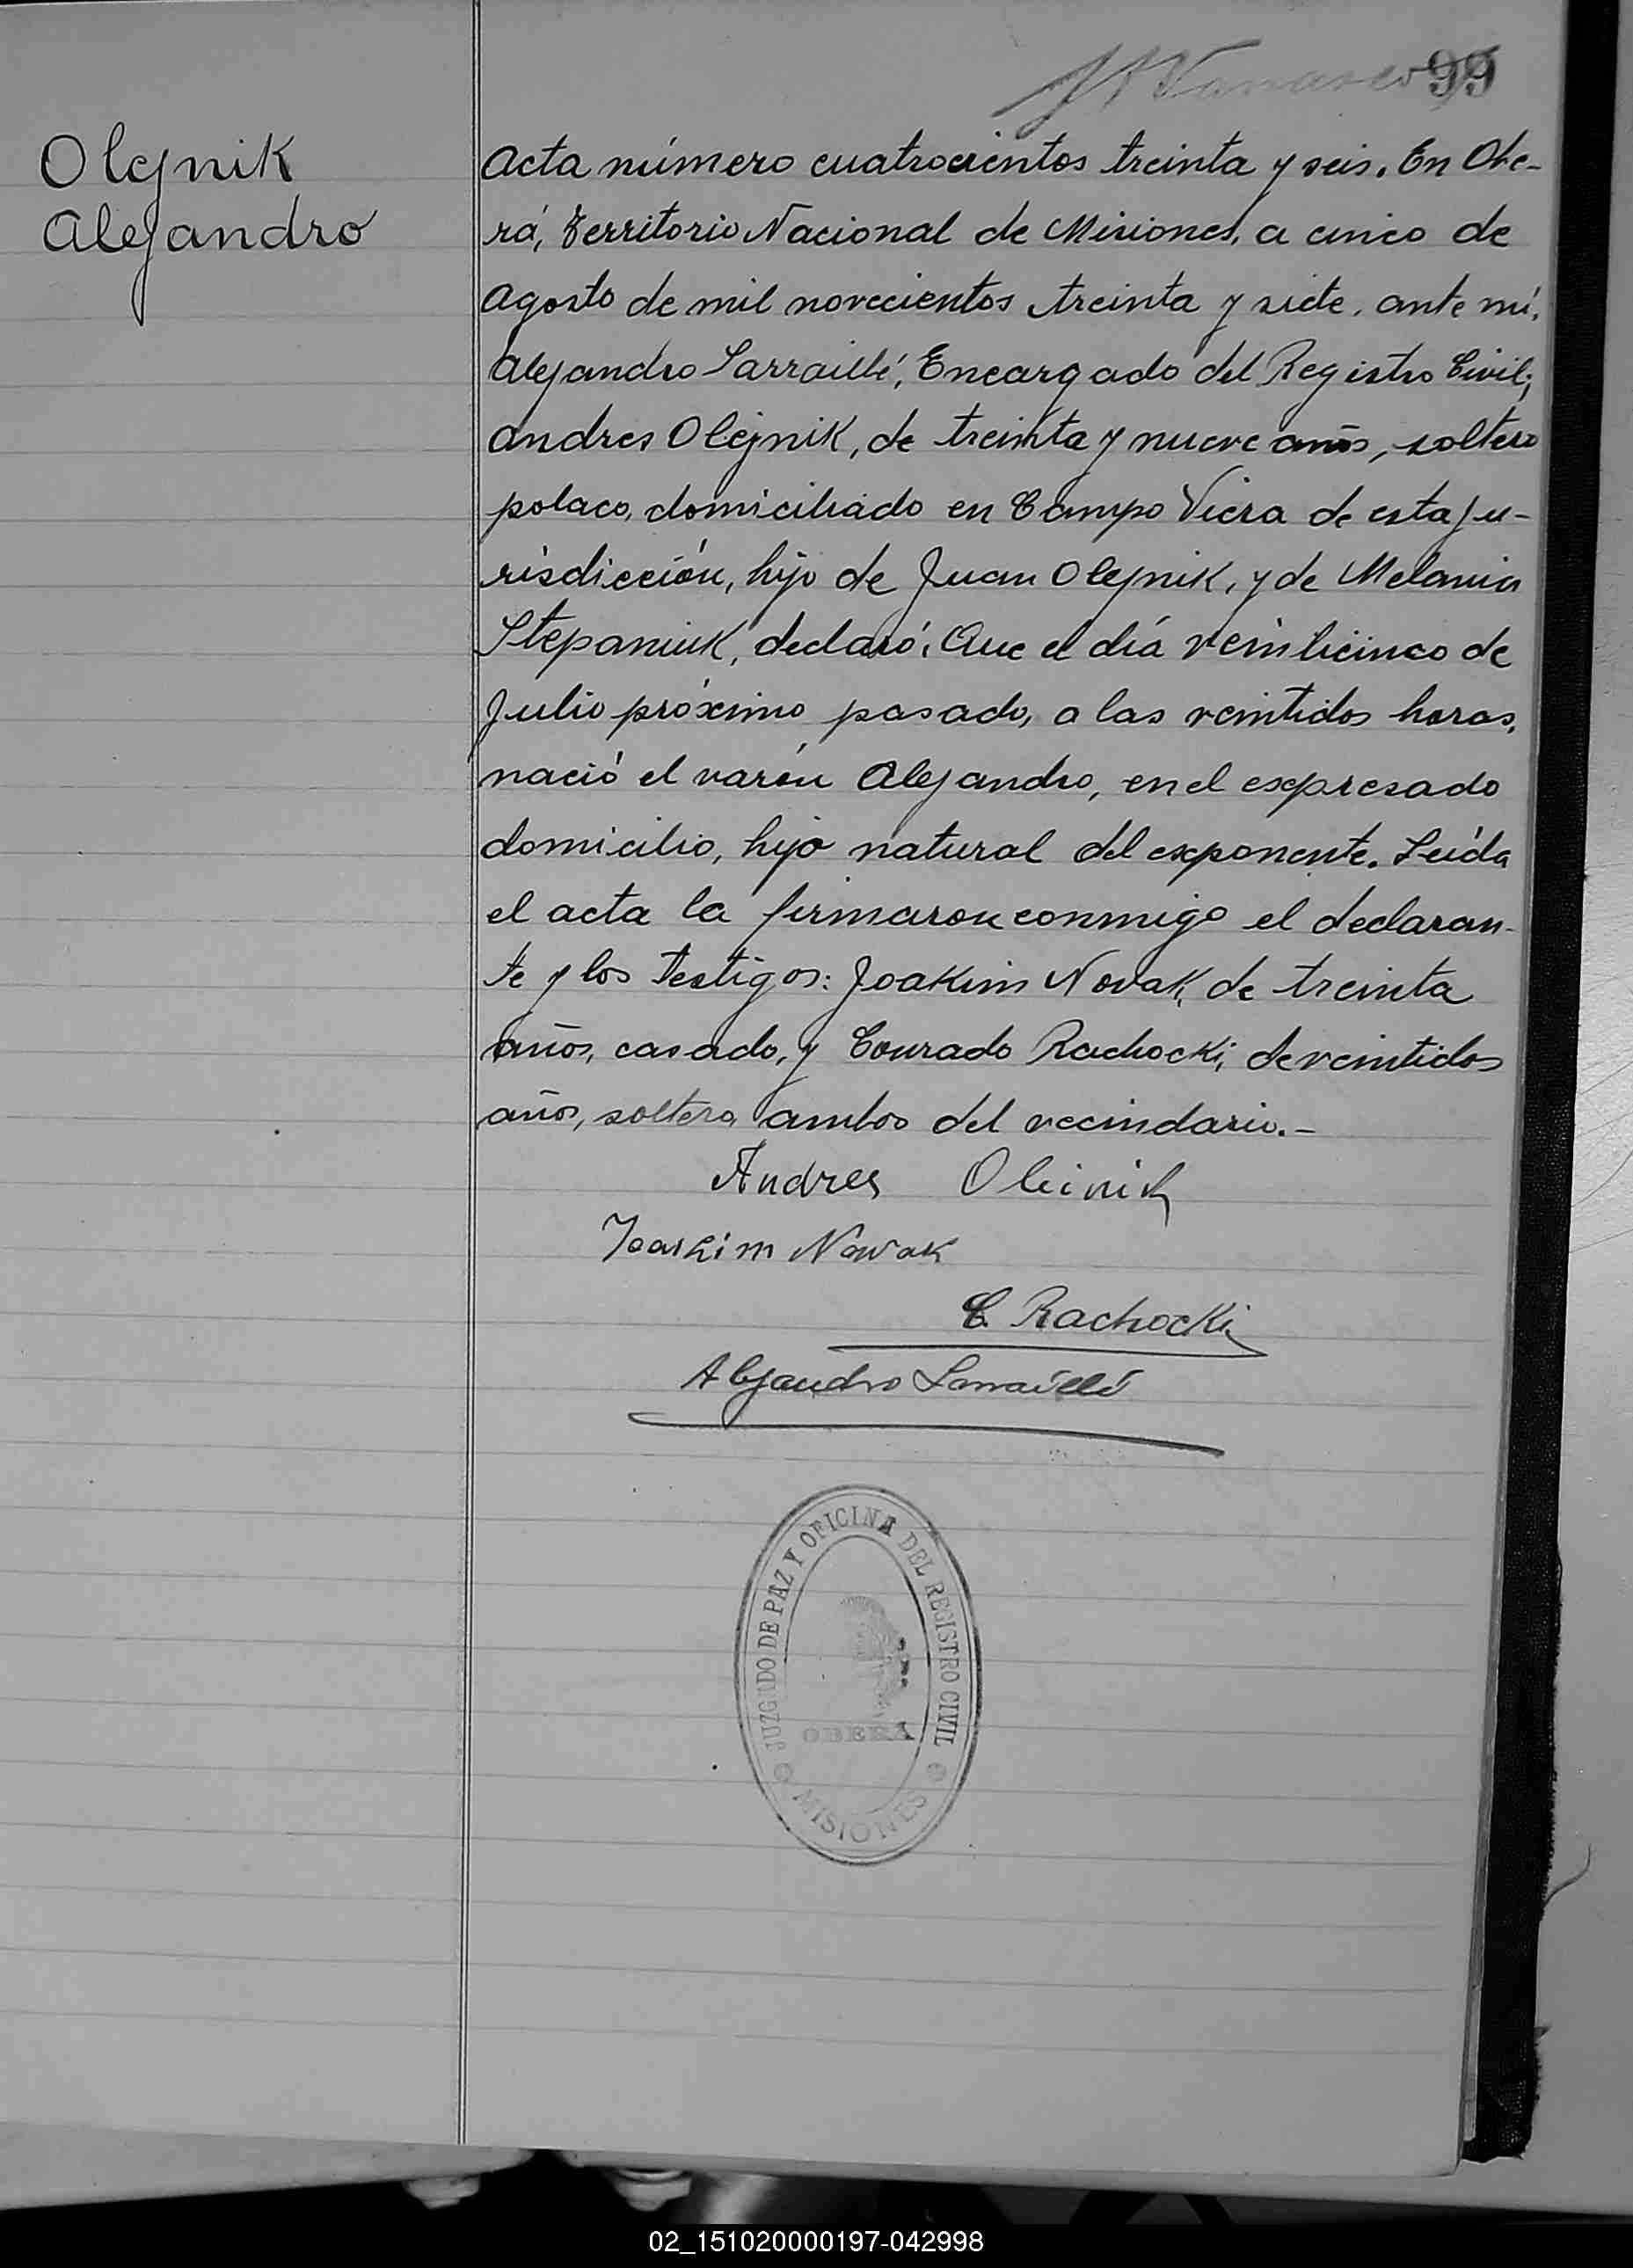 99
Olejnik
Alejandro
Acta número cuatrocientos treinta y seis. En Obe-
rá, Territorio Nacional de Misiones, a cinco de
Agosto de mil novecientos treinta y siete, ante mí,
Alejandro Sarraillé, Encargado del Registro Civil;
Andres Olejnik, de treinta y nueve años, soltero
polaco, domiciliado en Campo Viera de esta ju-
risdicción, hijo de Juan Olejnik, y de Melania
Stepaniuk, declaró: Que el día veinticinco de
Julio próximo pasado, a las veintidos horas,
nació el varón Alejandro, en el expresado
domicilio, hijo natural del exponente. Leída
el acta la firmaron conmigo el declaran-
te y los testigos: Joakim Novak, de treinta
años, casado, y Conrado Rachocki, de veintidos
años, soltero, ambos del vecindario.-
Andres Oleinik
Joakim Nowak
C. Rachocki
Alejandro Sarraillé
JUZGADO DE PAZ Y OFICINA DEL REGISTRO CIVIL
OBERA
MISIONES
02_151020000197-042998